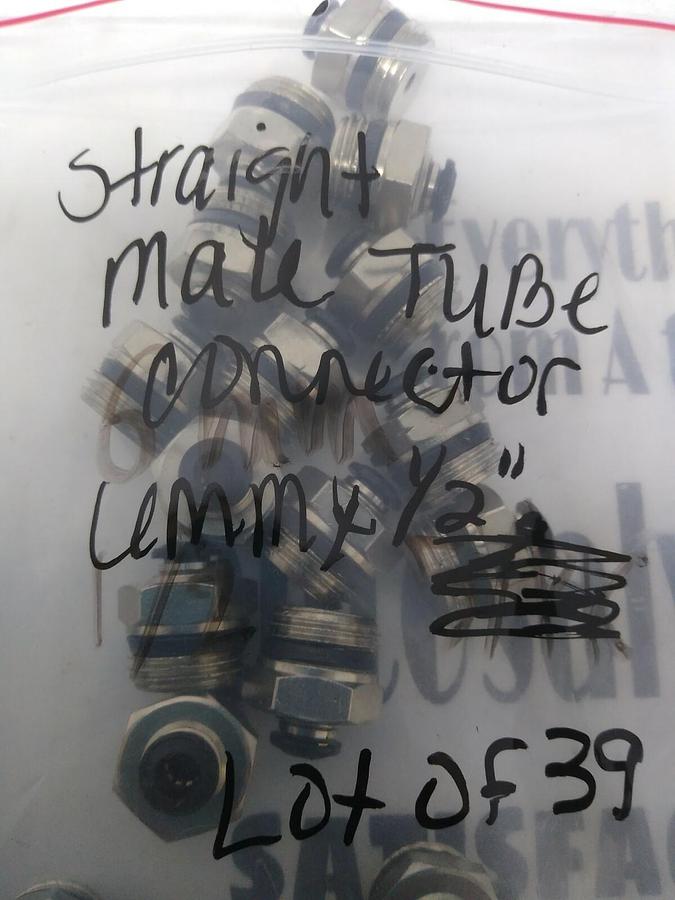 Straight
male TUBe
connector
6mm x 1/2"
6mm
Lot OF 39
Everyth
om A t
SATISFAC